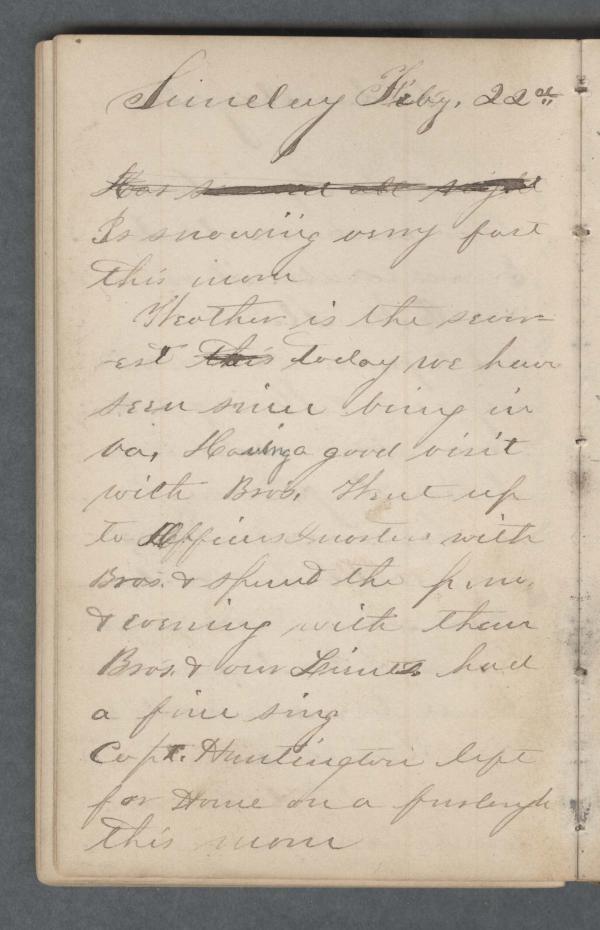 Sunday Feby. 22nd
Has snowed all night
Is snowing very fast
this morn
Weather is the sever-
-est this today we have
seen since being in
Va. Having a good visit
with Bros. Went up
to Officers Quarters with
Bros. & spend the p.m.
& evening with them
Bros. & our Lieuts had
a fine sing
Capt. Huntington left
for Home on a furlough
this morn